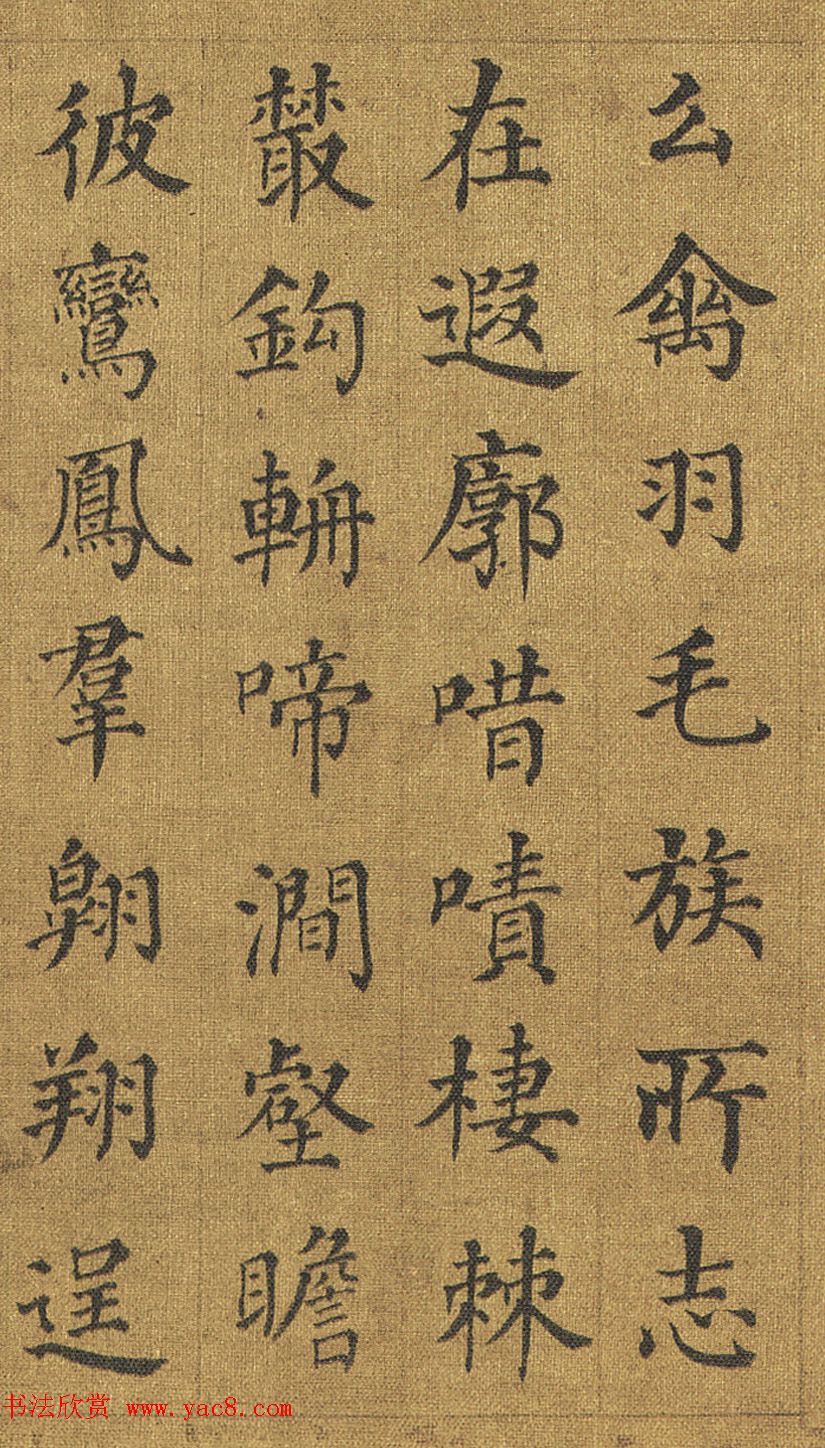 么禽羽毛族所志
在遐廓唶嘖棲棘
藂鈎輈啼澗壑瞻
彼鸞鳳羣翺翔逞
书法欣赏 www.yac8.com